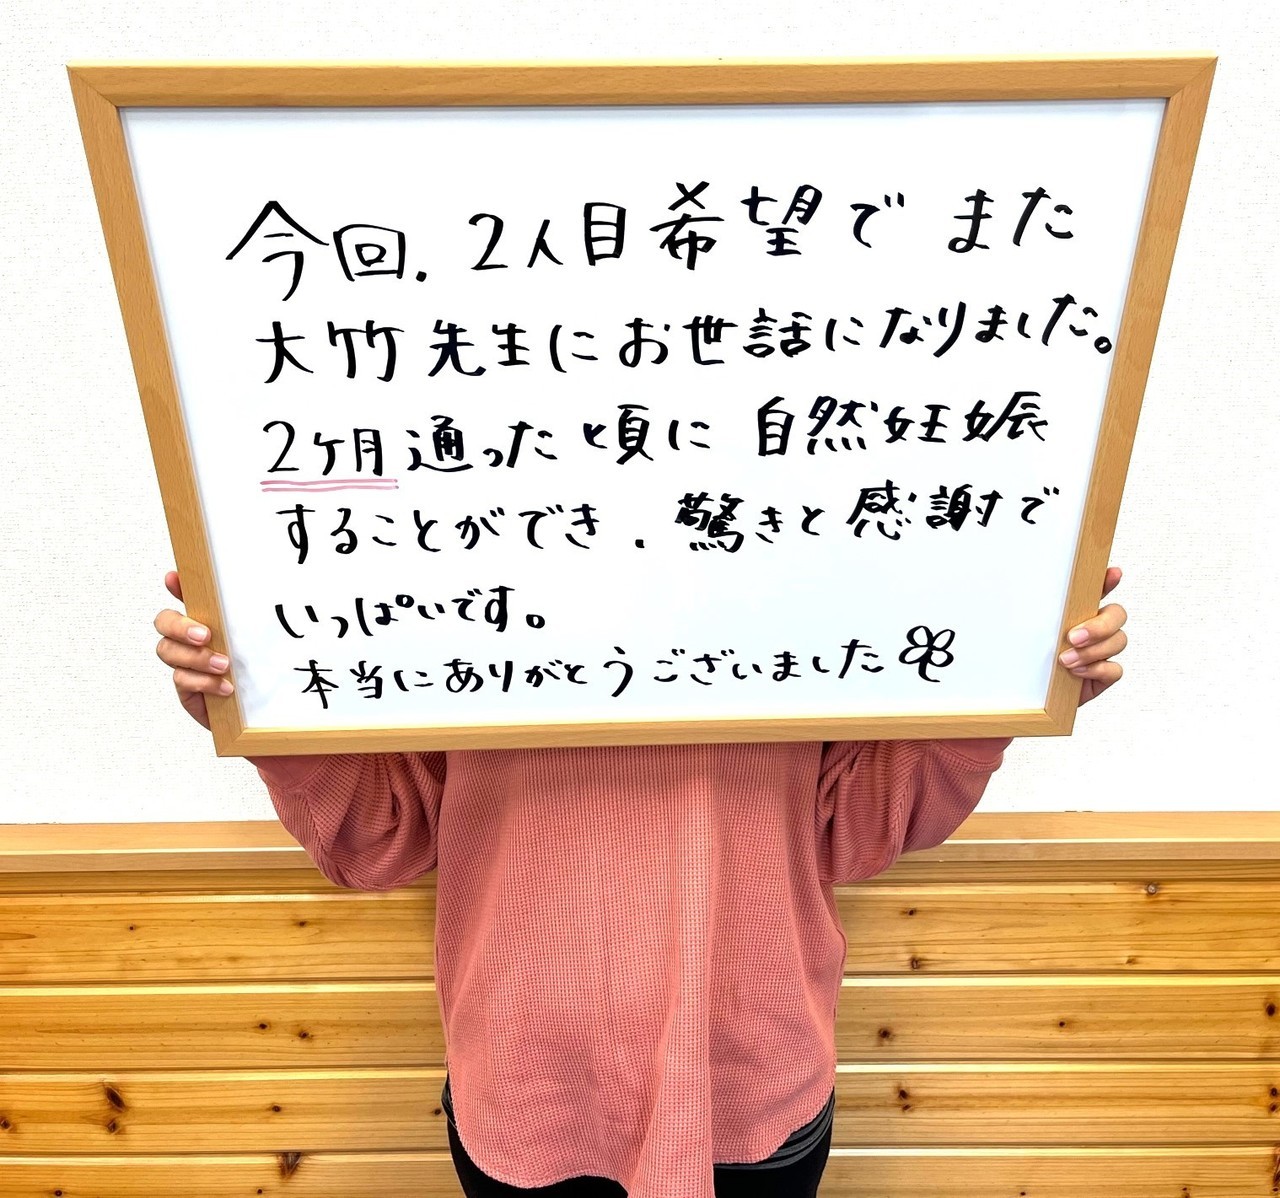 今回、2人目希望でまた
大竹先生にお世話になりました。
2ヶ月通った頃に自然妊娠
することができ、驚きと感謝で
いっぱいです。
本当にありがとうございました